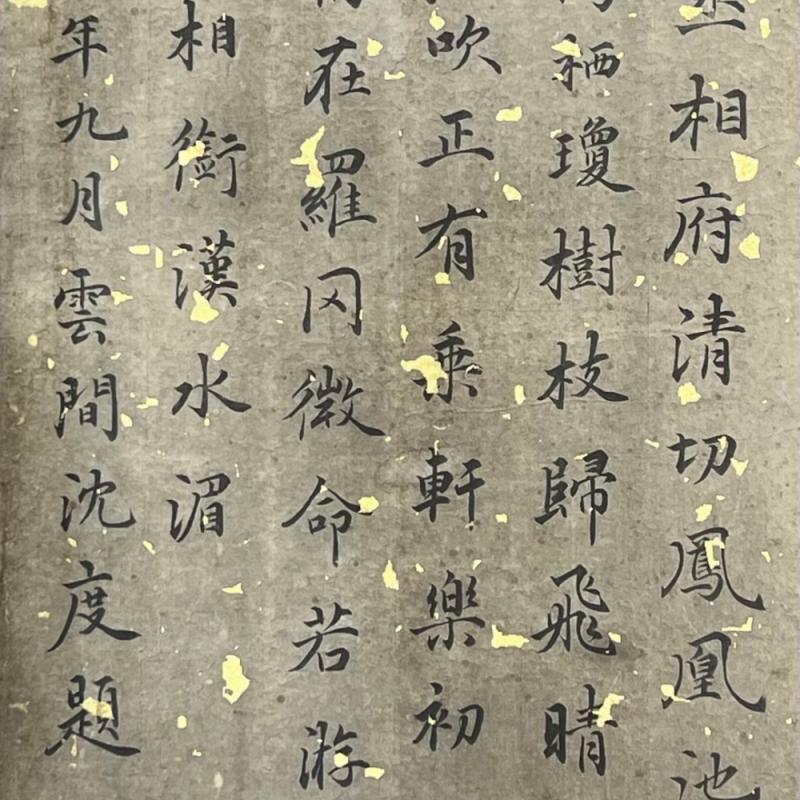 丞相府清切鳳凰池
栖瓊樹枝歸飛晴
吹正有乗軒樂初
在羅网微命若游
相銜漢水湄
年九月雲間沈度題